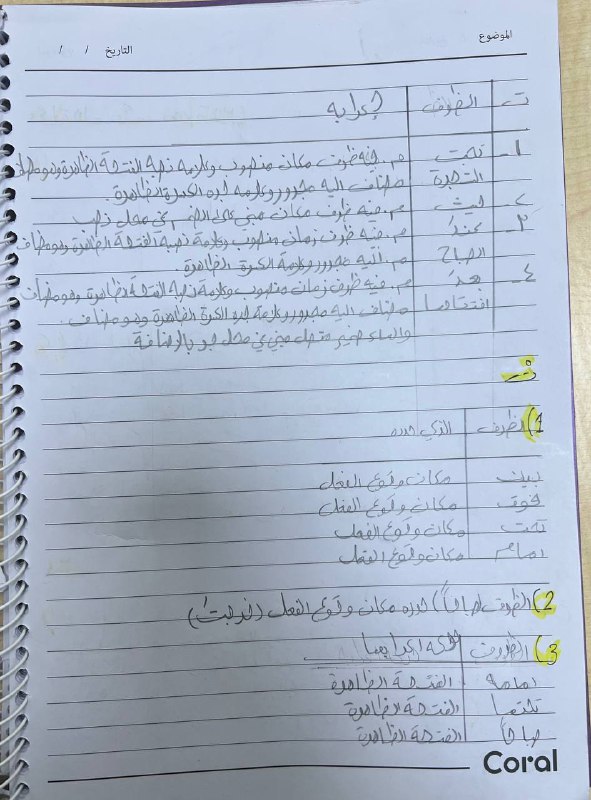 الموضوع
التاريخ / /
ت الظرف إعرابه
1- تحت م. فيه ظرف مكان منصوب وعلامة نصبه الفتحة الظاهرة وهو مضاف
الشجرة مضاف اليه مجرور وعلامة جره الكسرة الظاهرة.
2- حيث م. فيه ظرف مكان مبني على الضم في محل نصب
3- عند م. فيه ظرف زمان منصوب وعلامة نصبه الفتحة الظاهرة وهو مضاف
الصباح م. اليه مجرور وعلامة الكسرة الظاهرة.
4- بعد م. فيه ظرف زمان منصوب وعلامة نصبه الفتحة الظاهرة وهو مضاف
مضاف اليه مجرور وعلامة جره الكسرة الظاهرة وهو مضاف
والهاء ضمير متصل مبني في محل جر بالإضافة
1) الظرف الذي حدده
بين مكان وقوع الفعل
فوق مكان وقوع الفعل
تحت مكان وقوع الفعل
أمام مكان وقوع الفعل
2) الظرف (صباحاً) حدده مكان وقوع الفعل (ذهبت)
3) الظروف حركة إعرابها
أمامه الفتحة الظاهرة
تحتها الفتحة الظاهرة
صباحاً الفتحة الظاهرة
Coral